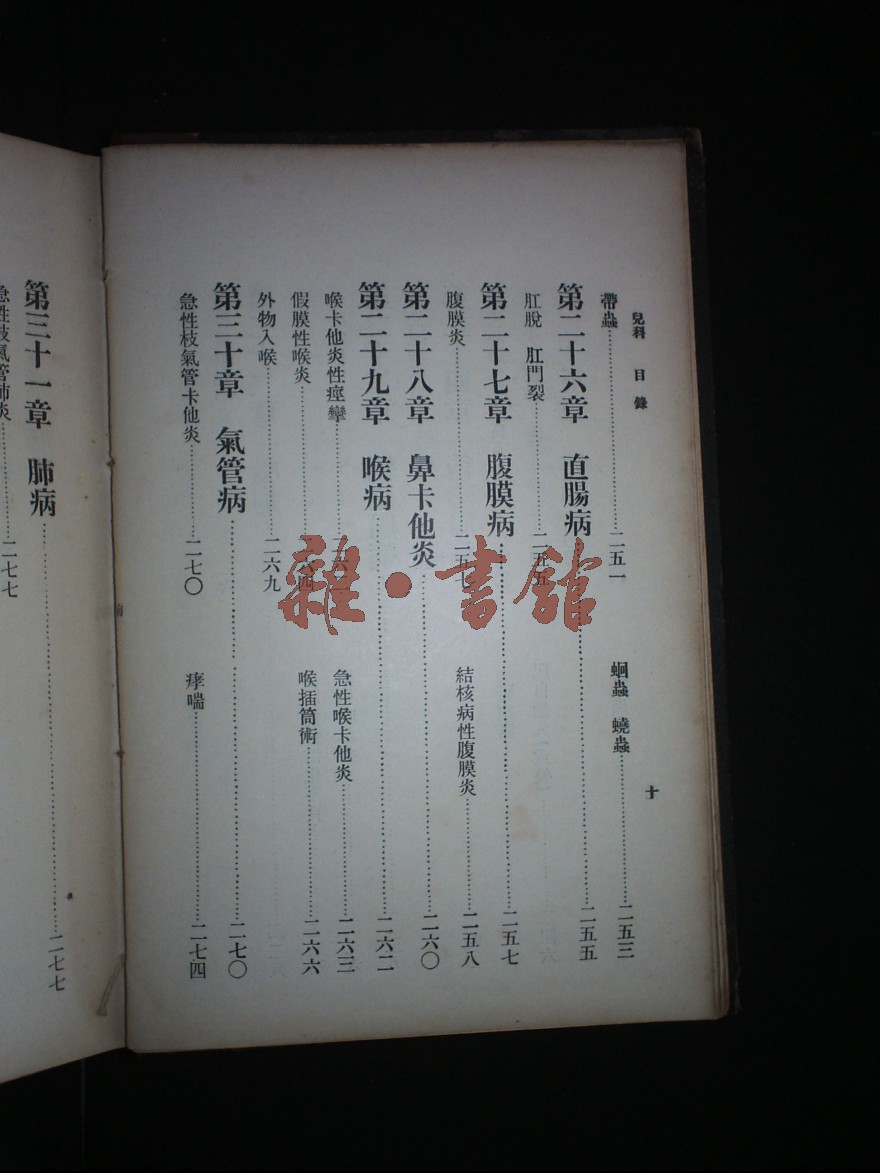 兒科 目錄 十
帶蟲 二五一 蛔蟲 蟯蟲 二五三
第二十六章 直腸病 二五五
肛脫 肛門裂 二五五
第二十七章 腹膜病 二五七
腹膜炎 二五七 結核病性腹膜炎 二五八
第二十八章 鼻卡他炎 二六〇
第二十九章 喉病 二六二
喉卡他炎性痙攣 急性喉卡他炎 二六三
假膜性喉炎 喉插筒術 二六六
外物入喉 二六九
第三十章 氣管病 二七〇
急性枝氣管卡他炎 二七〇 痺喘 二七四
第三十一章 肺病 二七七
急性枝氣管肺炎 二七七
雜·書館